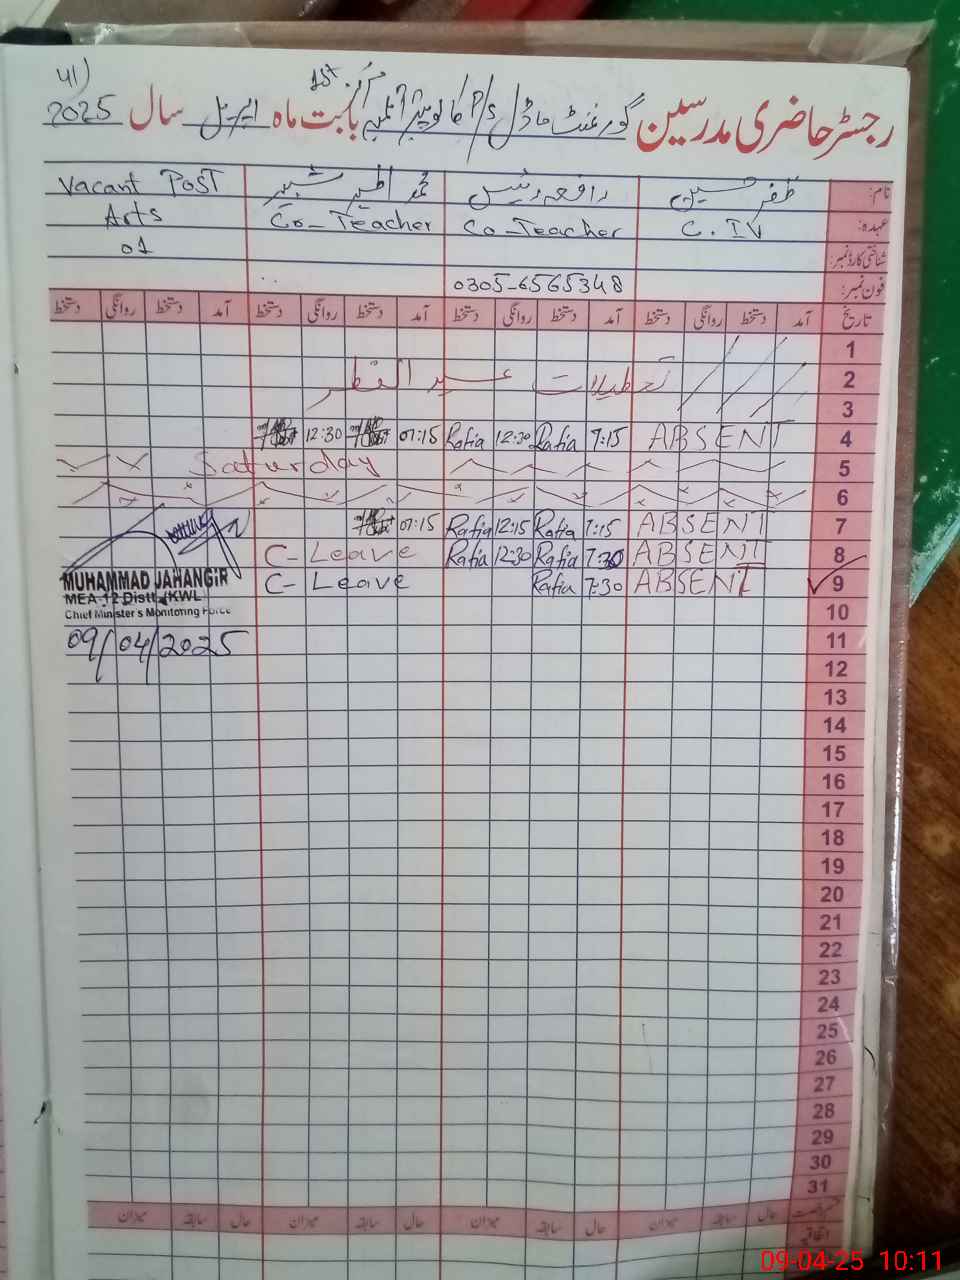 41)
رجسٹر حاضری مدرسین گورنمنٹ ماڈل P/S بابت ماہ اپریل سال 2025
1st
نام: ظفر حسین رافعہ رئیس محمد اظہر شبیر Vacant Post
عہدہ: C. IV Co-Teacher Co-Teacher Arts
شناختی کارڈ نمبر: 01
فون نمبر: 0305-6565348
تاریخ آمد دستخط روانگی دستخط آمد دستخط روانگی دستخط آمد دستخط روانگی دستخط آمد دستخط روانگی دستخط
1
2 تعطیلات عید الفطر
3
4 ABSENT 7:15 Rafia 12:30 Rafia 07:15 12:30
5 Saturday
6
7 ABSENT 7:15 Rafia 12:15 Rafia 07:15
8 ABSENT 7:30 Rafia 12:30 Rafia C-Leave
9 ABSENT 7:30 Rafia C-Leave
MUHAMMAD JAHANGIR
MEA-12 Distt. KWL
Chief Minister's Monitoring Force
09/04/2025
10
11
12
13
14
15
16
17
18
19
20
21
22
23
24
25
26
27
28
29
30
31
حال سابقہ میزان حال سابقہ میزان حال سابقہ میزان حال سابقہ میزان
اتفاقیہ
09-04-25 10:11